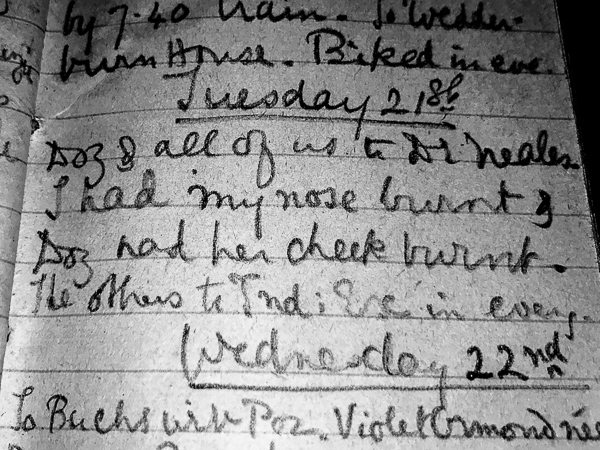 by 7.40 train. To Wedder-
burn House. Biked in eve.
Tuesday 21st
Doz & all of us to Dr Neales
I had my nose burnt &
Doz had her cheek burnt.
The others to Ind: Exc in eveng.
Wednesday 22nd
To Buchs with Poz. Violet Ormond née